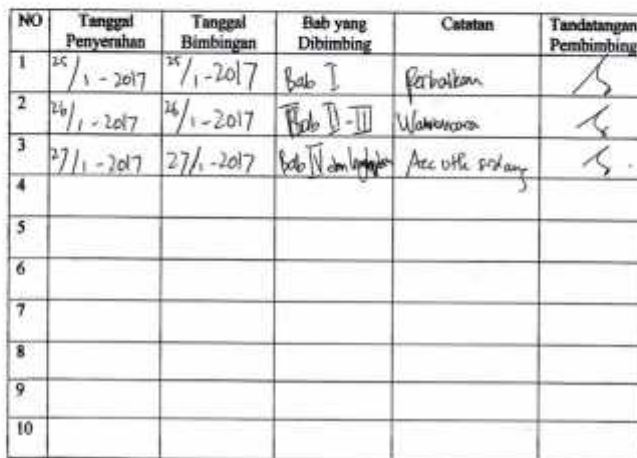 NO Tanggal Penyerahan Tanggal Bimbingan Bab yang Dibimbing Catatan Tandatangan Pembimbing
1 25/1-2017 25/1-2017 Bab I Perbaikan
2 26/1-2017 26/1-2017 Bab II-III Wawancara
3 27/1-2017 27/1-2017 Bab IV dan lengkapi Acc utk sidang
4
5
6
7
8
9
10